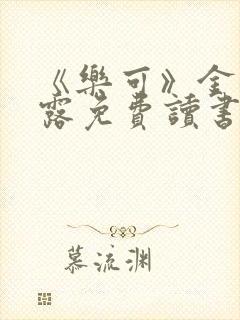 《樂可》金
露免費讀書
慕流渊